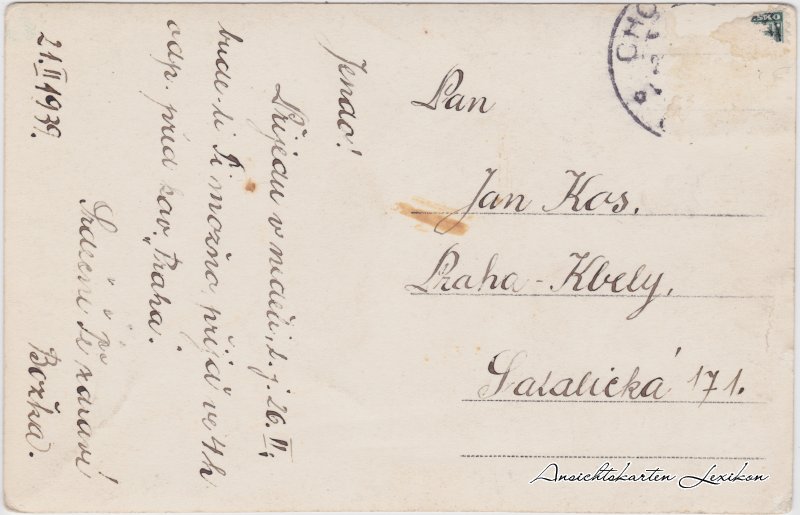 Jendo!
Přijedu v neděli, t. j. 26. II.,
bude-li Ti možno, přijď ve 4 h
odp. před kav. „Praha.
Srdečně Tě zdraví
Božka.
21. II 1939.
Pan
Jan Kos.
Praha-Kbely,
Satalická 171.
CHO
Ansichtskarten Lexikon